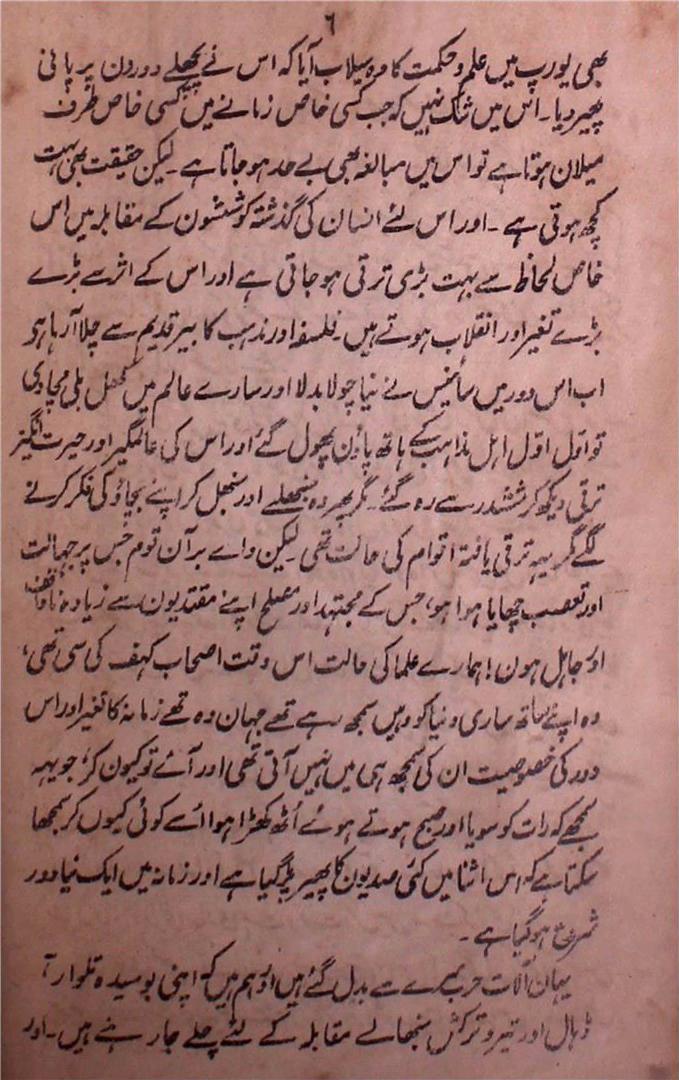 ۶
بھی یورپ میں علم و حکمت کا وہ سیلاب آیا کہ اس نے پچھلے دورون پر پانی
پھیر دیا۔ اس میں شک نہیں کہ جب کسی خاص زمانے میں کسی خاص طرف
میلان ہوتا ہے تو اس میں مبالغہ بھی بے حد ہو جاتا ہے۔ لیکن حقیقت بھی بہت
کچھ ہوتی ہے۔ اور اس لئے انسان کی گذشتہ کوششون کے مقابلہ میں اس
خاص لحاظ سے بہت بڑی ترقی ہو جاتی ہے اور اس کے اثر سے بڑے
بڑے تغیر اور انقلاب ہوتے ہیں۔ فلسفہ اور مذہب کا بیر قدیم سے چلا آ رہا ہو
اب اس دور میں سائنس نے نیا چولا بدلا اور سارے عالم میں کھل بلی مچا دی
تو اول اوّل اہل مذاہب کے ہاتھ پاؤن پھول گئے اور اس کی عالمگیر اور حیرت انگیز
ترقی دیکھ کر ششدر سے رہ گئے۔ مگر پھر وہ سنبھلے اور سنبھل کر اپنے بچاؤ کی فکر کرنے
لگے مگر یہہ ترقی یافتہ اقوام کی حالت تھی۔ لیکن واے بر آن قوم جس پر جہالت
اور تعصب چھایا ہوا ہو، جس کے مجتہد اور مصلح اپنے مقتدیون سے زیادہ ناواقف
اور جاہل ہون! ہمارے علما کی حالت اس وقت اصحاب کہف کی سی تھی،
وہ اپنے ساتھ ساری دنیا کو وہیں سمجھ رہے تھے جہان وہ تھے زمانہ کا تغیر اور اس
دور کی خصوصیت ان کی سمجھ ہی میں نہیں آتی تھی اور آے تو کیون کر؟ جو یہہ
سمجھے کہ رات کو سویا اور صبح ہوتے ہوئے اُٹھ کھڑا ہوا اُسے کوئی کیوں کر سمجھا
سکتا ہے کہ اس اثنا میں کئی صدیون کا پھیر پڑ گیا ہے اور زمانہ میں ایک نیا دور
شروع ہو گیا ہے۔
یہان آلات حرب سرے سے بدل گئے ہیں اور ہم ہیں کہ اپنی بوسیدہ تلوار
ڈہال اور تیر و ترکش سنبھالے مقابلہ کے لئے چلے جا رہے ہیں۔ اور